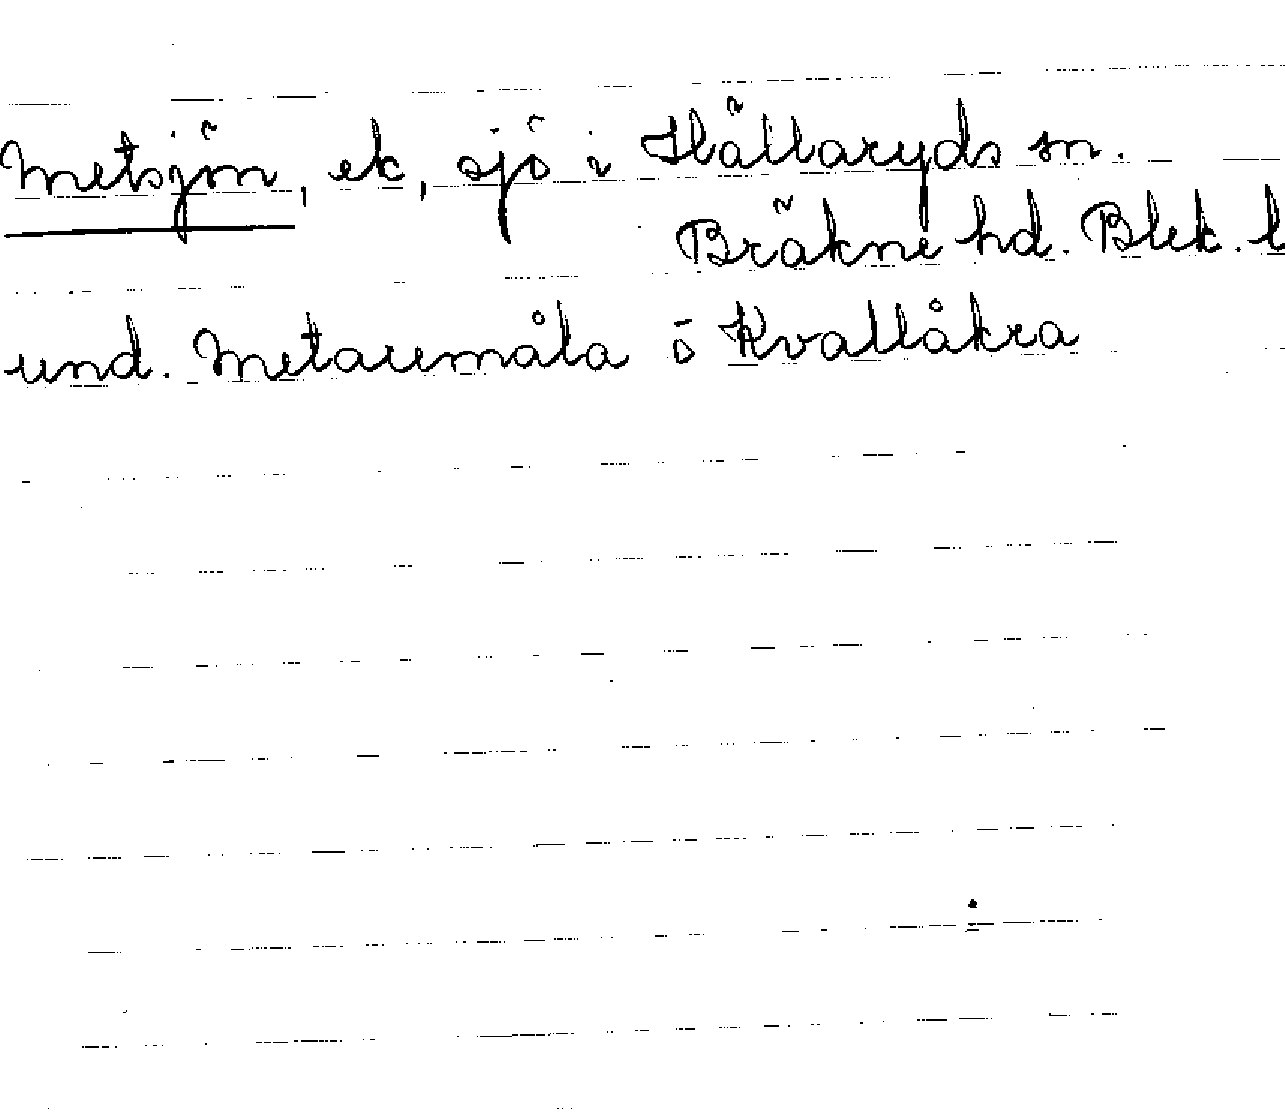 Metsjön, ek, sjö i Hällaryds sn.
Bräkne hd. Blek. l
und. Metaremåla ö Kvallåkra